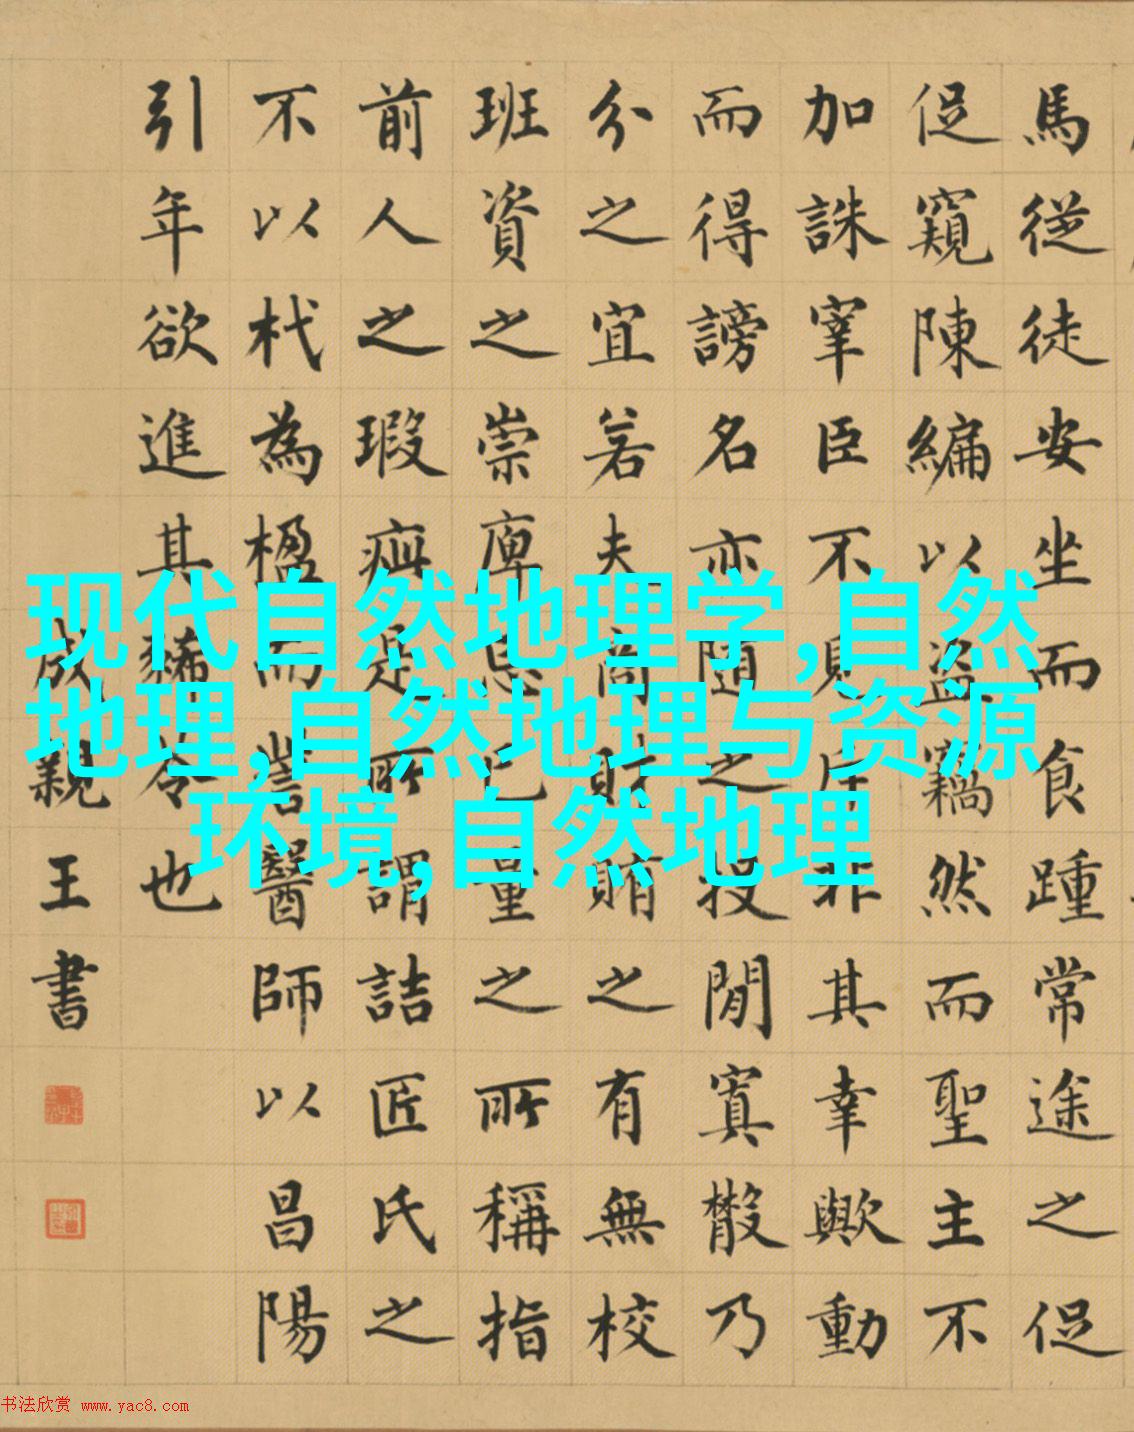 馬從徒安坐而食踵常途之促
促窺陳編以盜竊然而聖主不
加誅宰臣不見斥非其幸歟動
而得謗名亦隨之投閒寘散乃
分之宜若夫商財賄之有無校
班資之崇庳忘己量之所稱指
前人之瑕疵是所謂詰匠氏之
不以杙為楹而訾醫師以昌陽
引年欲進其豨苓也
成親王書
现代自然地理学,自然
地理,自然地理与资源
环境,自然地理
书法欣赏 www.yac8.com